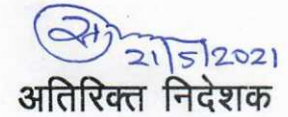 21/5/2021
अतिरिक्त निदेशक